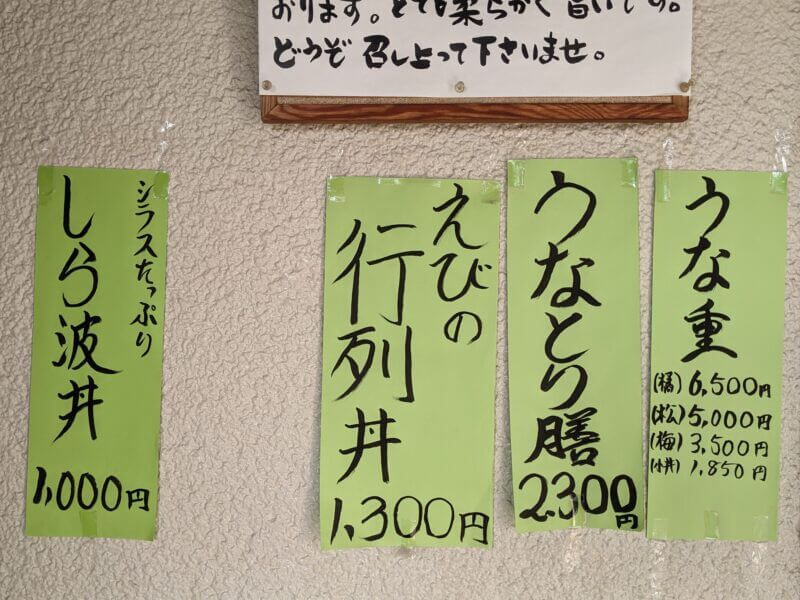 おります。とても柔らかく旨いです。
どうぞ 召し上って下さいませ。
うな重
(橘) 6,500円
(松) 5,000円
(梅) 3,500円
(小丼) 1,850円
うなとり膳
2,300円
えびの
行列丼
1,300円
シラスたっぷり
しら波丼
1,000円